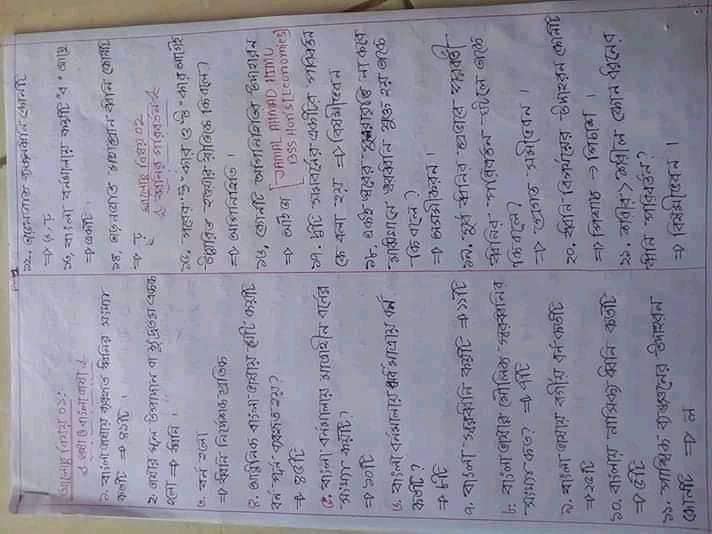 আলোচ্য বিষয় ০১:
ভাষা ও বাংলা ভাষা
১. বাংলা ভাষায় ব্যবহৃত ধ্বনির সংখ্যা
কতটি ⇒ ৪১টি ।
২. ভাষার মূল উপাদান বা ক্ষুদ্রতম একক
হলো ⇒ ধ্বনি ।
৩. বর্ন হলো
⇒ ধ্বনি নির্দেশক প্রতিক
৪. আধুনিক বাংলা ভাষায় মোট কয়টি
বর্ন পূর্ন ব্যবহৃত হয়?
⇒ ৪৫টি
৫. বাংলা বর্নমালায় মাত্রাহীন বর্নের
সংখ্যা কয়টি?
⇒ ১০টি
৬. বাংলা বর্নমালায় অর্ধ মাত্রার বর্ন
কতটি?
⇒ ৮টি
৭. বাংলা স্বরধ্বনি কয়টি ⇒ ১১টি
৮. বাংলা ভাষার মৌলিক স্বরধ্বনির
সংখ্যা কত? ⇒ ৭টি
৯. বাংলা ভাষায় বর্গীয় বর্ন কতটি
⇒ ২৫টি
১০. বাংলায় নাসিক্য ধ্বনি কতটি
⇒ ৫টি
১১. পার্শ্বিক ব্যঞ্জনের উদাহরন
কোনটি ⇒ ল
১২. ব্যঞ্জনধ্বনি কোনটি
⇒ ড়, ঢ়
১৩. বাংলা বর্নমালায় কয়টি "ব" আছে
⇒ একটি ।
১৪. তাড়নজাত মহাপ্রান ধ্বনি কোনটি
⇒ ঢ়
আলোচ্য বিষয় ০২
ধ্বনির পরিবর্তন
১৫. পরের "ই" কার ও "উ" কার আগেই
উচ্চারিত হওয়ার রীতিকে কি বলে?
⇒ অপিনিহিতি ।
১৬. কোনটি অপিনিহিতির উদাহরন
⇒ আইজ [JAMAL AHMAD HIMU
BSS Hon's (Economics)]
১৭. দুটি সমবর্নের একটির পরিবর্তন
কে বলা হয় ⇒ বিষমীভবন
১৮. একই স্বরের পুনরাবৃত্তি না করে
মাঝখানে স্বরধ্বনি যুক্ত হয় তাকে
কি বলে?
⇒ অসমীকরন ।
১৯. পূর্ব ধ্বনির প্রভাবে পরবর্তী
ধ্বনির পরিবর্তন ঘটলে তাকে
কি বলে?
⇒ প্রগত সমীভবন ।
২০. ধ্বনি বিপর্যয়ের উদাহরন কোনটি
⇒ পিশাচ → পিচাশ ।
২১. শরীর > শরীল কোন ধরনের
ধ্বনি পরিবর্তন?
⇒ বিষমীভবন ।